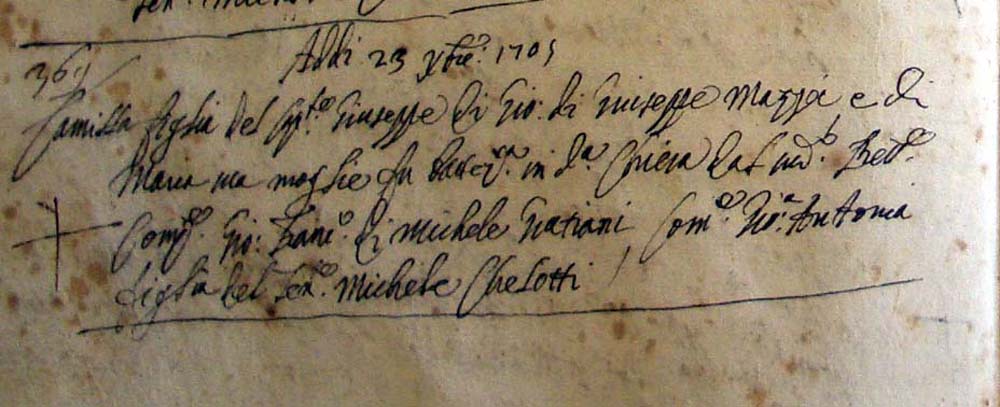 Addi 23 Xbre. 1705
Camilla figlia del Giuseppe di Gio: di Giuseppe Mazzei e di
Maria sua moglie fu battez.ta in d.a Chiesa dal sud.o Rett.e
Comp.e Gio: Franc.o di Michele Gratiani, Com.e Gio.a Antonia
figlia del Michele Chelotti